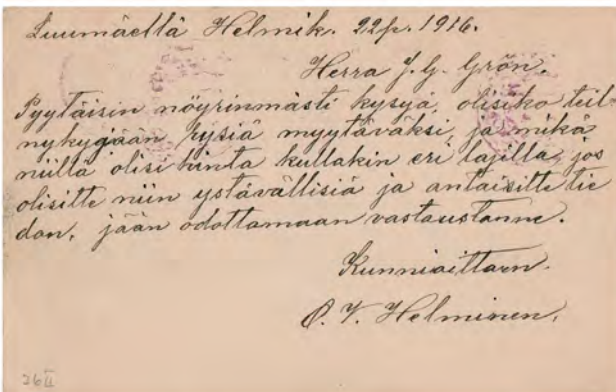 Luumäellä Helmik. 22p. 1916.
Herra J. G. Grön.
Pyytäisin nöyrinmästi kysyä, olisiko teil
nykyjään rysiä myytäväksi, ja mikä
niillä olisi hinta kullakin eri lajilla, jos
olisitte niin ystävällisiä ja antaisitte tie
don, jään odottamaan vastaustanne.
Kunnioittaen.
O. V. Helminen.
26 II